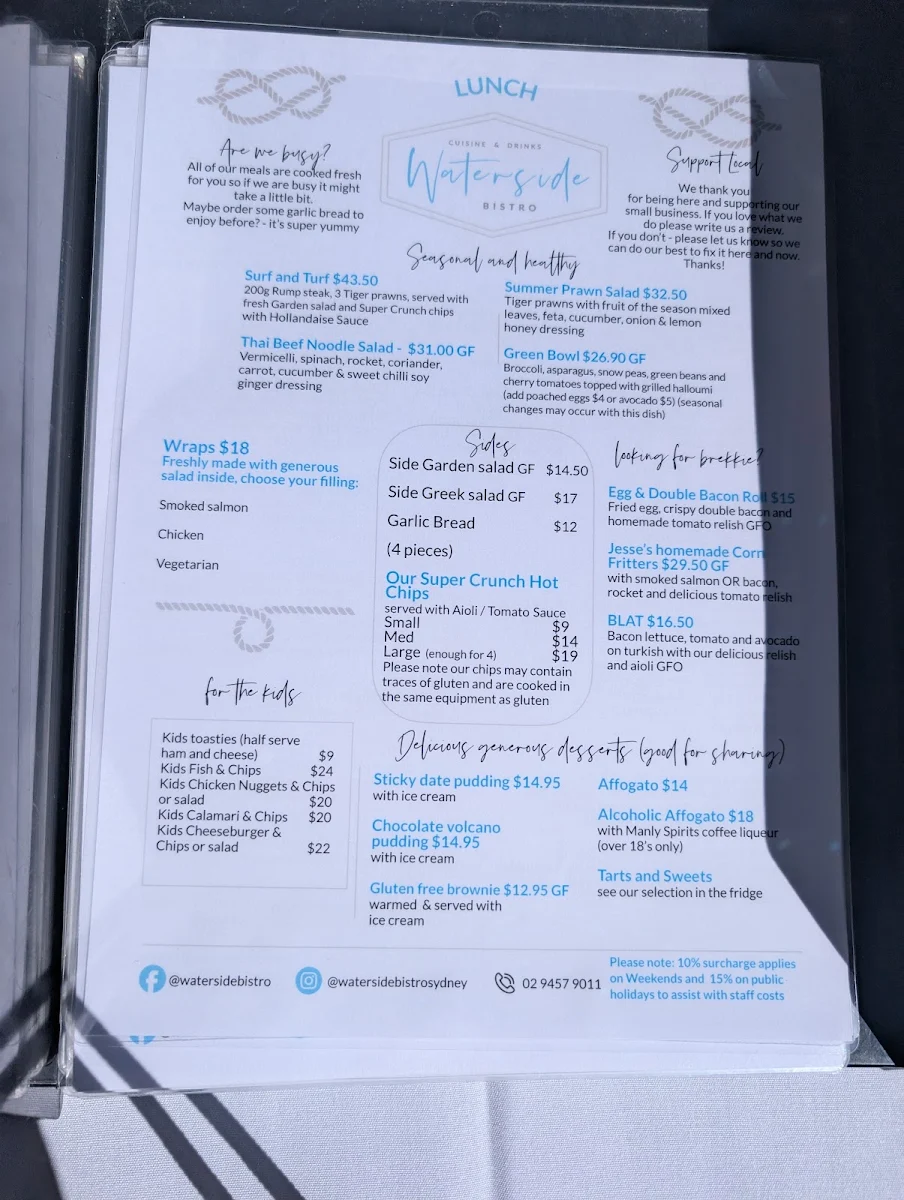 LUNCH
CUISINE & DRINKS
Waterside
BISTRO
Are we busy?
All of our meals are cooked fresh
for you so if we are busy it might
take a little bit.
Maybe order some garlic bread to
enjoy before? - it's super yummy
Support Local
We thank you
for being here and supporting our
small business. If you love what we
do please write us a review.
If you don't - please let us know so we
can do our best to fix it here and now.
Thanks!
Seasonal and healthy
Surf and Turf $43.50
200g Rump steak, 3 Tiger prawns, served with
fresh Garden salad and Super Crunch chips
with Hollandaise Sauce
Thai Beef Noodle Salad - $31.00 GF
Vermicelli, spinach, rocket, coriander,
carrot, cucumber & sweet chilli soy
ginger dressing
Summer Prawn Salad $32.50
Tiger prawns with fruit of the season mixed
leaves, feta, cucumber, onion & lemon
honey dressing
Green Bowl $26.90 GF
Broccoli, asparagus, snow peas, green beans and
cherry tomatoes topped with grilled halloumi
(add poached eggs $4 or avocado $5) (seasonal
changes may occur with this dish)
Wraps $18
Freshly made with generous
salad inside, choose your filling:
Smoked salmon
Chicken
Vegetarian
Sides
Side Garden salad GF $14.50
Side Greek salad GF $17
Garlic Bread $12
(4 pieces)
Our Super Crunch Hot
Chips
served with Aioli / Tomato Sauce
Small $9
Med $14
Large (enough for 4) $19
Please note our chips may contain
traces of gluten and are cooked in
the same equipment as gluten
looking for brekkie?
Egg & Double Bacon Roll $15
Fried egg, crispy double bacon and
homemade tomato relish GFO
Jesse's homemade Corn
Fritters $29.50 GF
with smoked salmon OR bacon,
rocket and delicious tomato relish
BLAT $16.50
Bacon lettuce, tomato and avocado
on turkish with our delicious relish
and aioli GFO
for the kids
Kids toasties (half serve
ham and cheese) $9
Kids Fish & Chips $24
Kids Chicken Nuggets & Chips
or salad $20
Kids Calamari & Chips $20
Kids Cheeseburger &
Chips or salad $22
Delicious generous desserts (good for sharing)
Sticky date pudding $14.95
with ice cream
Chocolate volcano
pudding $14.95
with ice cream
Gluten free brownie $12.95 GF
warmed & served with
ice cream
Affogato $14
Alcoholic Affogato $18
with Manly Spirits coffee liqueur
(over 18's only)
Tarts and Sweets
see our selection in the fridge
@watersidebistro
@watersidebistrosydney
02 9457 9011
Please note: 10% surcharge applies
on Weekends and 15% on public
holidays to assist with staff costs